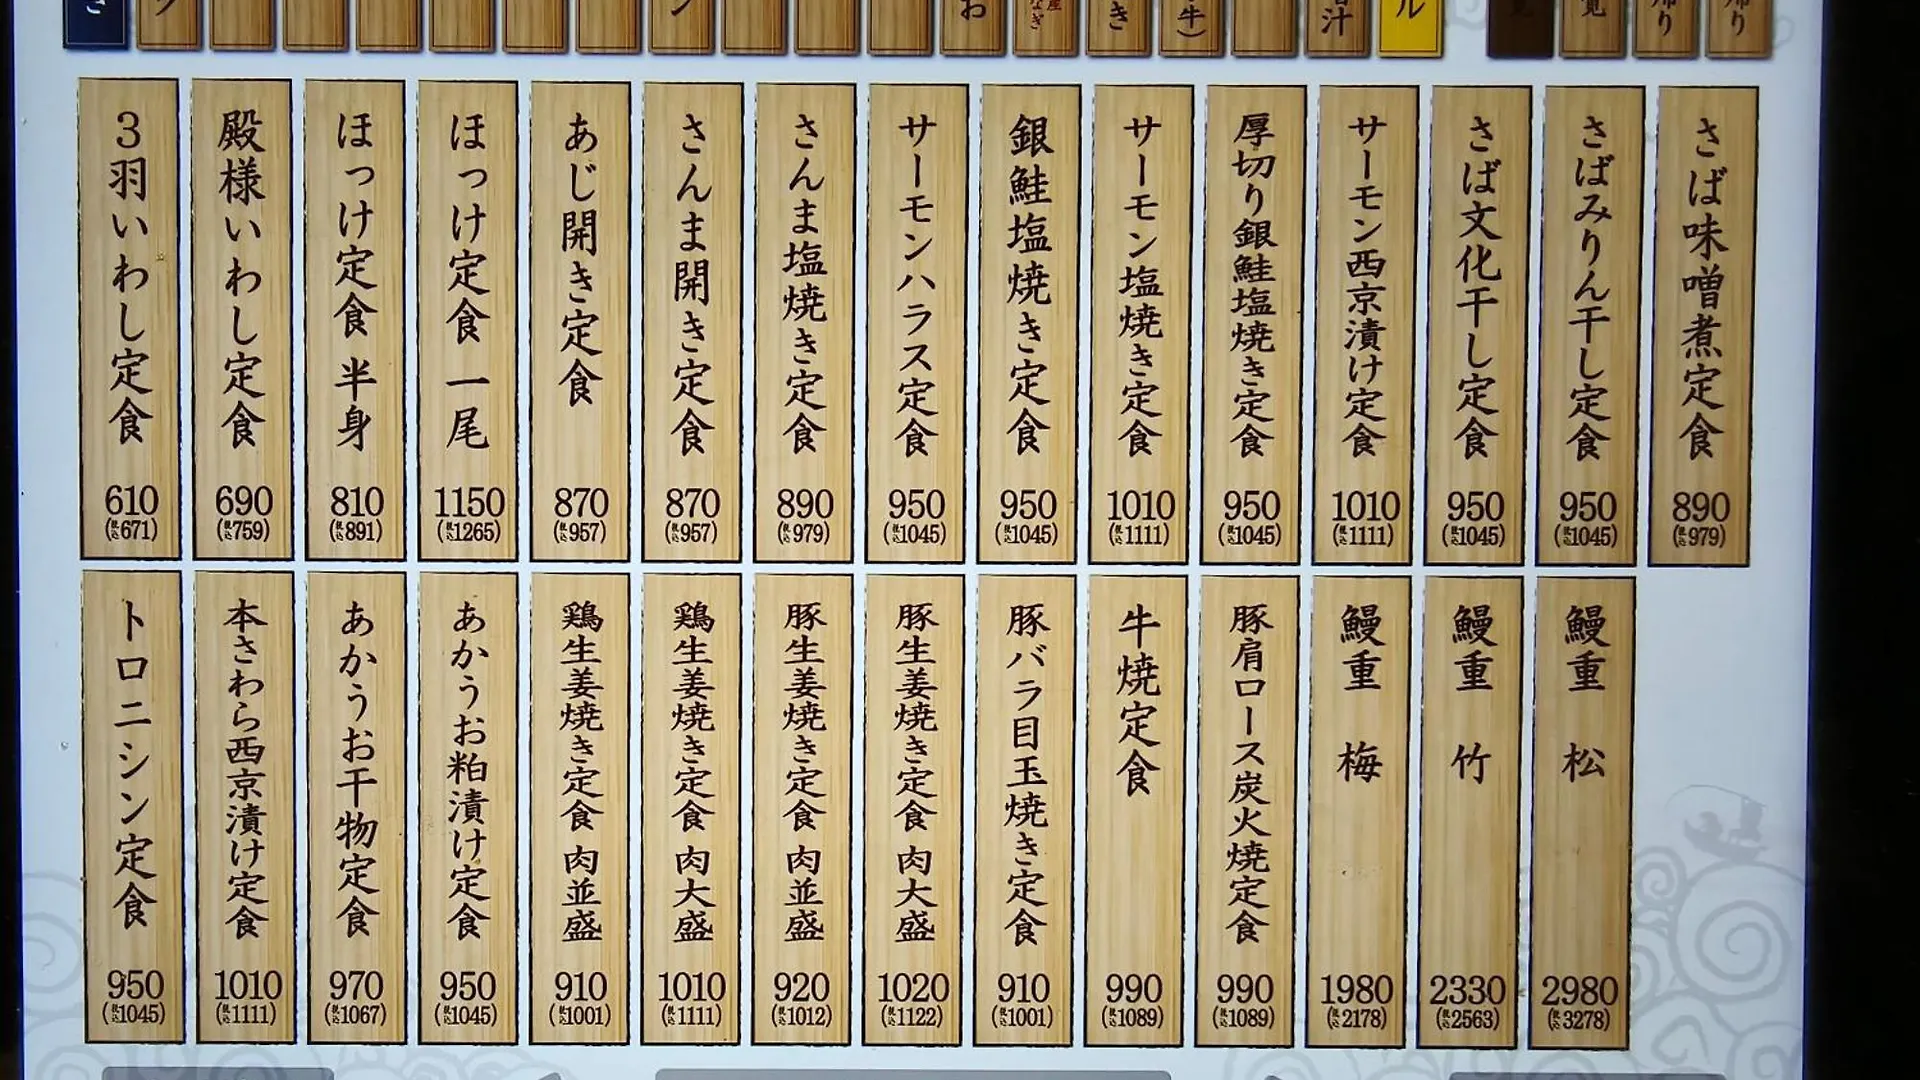 き
お
き
牛)
汁
ル
覚
帰り
帰り
3羽いわし定食
610
(税込671)
殿様いわし定食
690
(税込759)
ほっけ定食 半身
810
(税込891)
ほっけ定食 一尾
1150
(税込1265)
あじ開き定食
870
(税込957)
さんま開き定食
870
(税込957)
さんま塩焼き定食
890
(税込979)
サーモンハラス定食
950
(税込1045)
銀鮭塩焼き定食
950
(税込1045)
サーモン塩焼き定食
1010
(税込1111)
厚切り銀鮭塩焼き定食
950
(税込1045)
サーモン西京漬け定食
1010
(税込1111)
さば文化干し定食
950
(税込1045)
さばみりん干し定食
950
(税込1045)
さば味噌煮定食
890
(税込979)
トロニシン定食
950
(税込1045)
本さわら西京漬け定食
1010
(税込1111)
あかうお干物定食
970
(税込1067)
あかうお粕漬け定食
950
(税込1045)
鶏生姜焼き定食 肉並盛
910
(税込1001)
鶏生姜焼き定食 肉大盛
1010
(税込1111)
豚生姜焼き定食 肉並盛
920
(税込1012)
豚生姜焼き定食 肉大盛
1020
(税込1122)
豚バラ目玉焼き定食
910
(税込1001)
牛焼定食
990
(税込1089)
豚肩ロース炭火焼定食
990
(税込1089)
鰻重 梅
1980
(税込2178)
鰻重 竹
2330
(税込2563)
鰻重 松
2980
(税込3278)